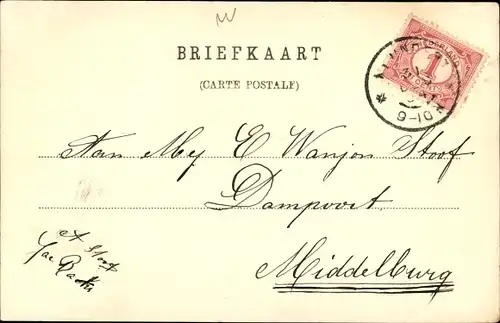 BRIEFKAART
(CARTE POSTALE)
NEDERLAND
1
CENT
9-10
Aan Mej E Wanjon Stoof
Dampoort
Middelburg
Stoof
Jac